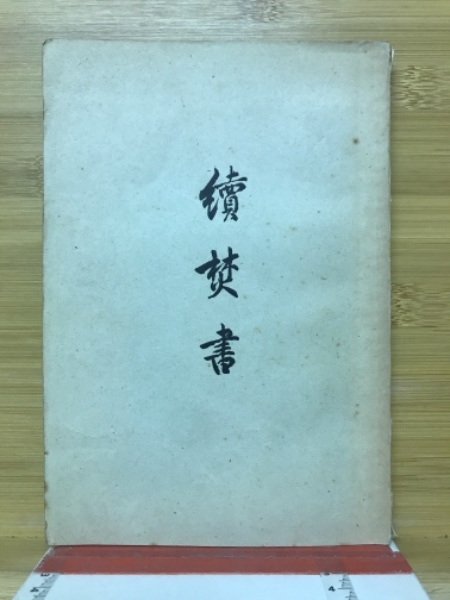 續焚書